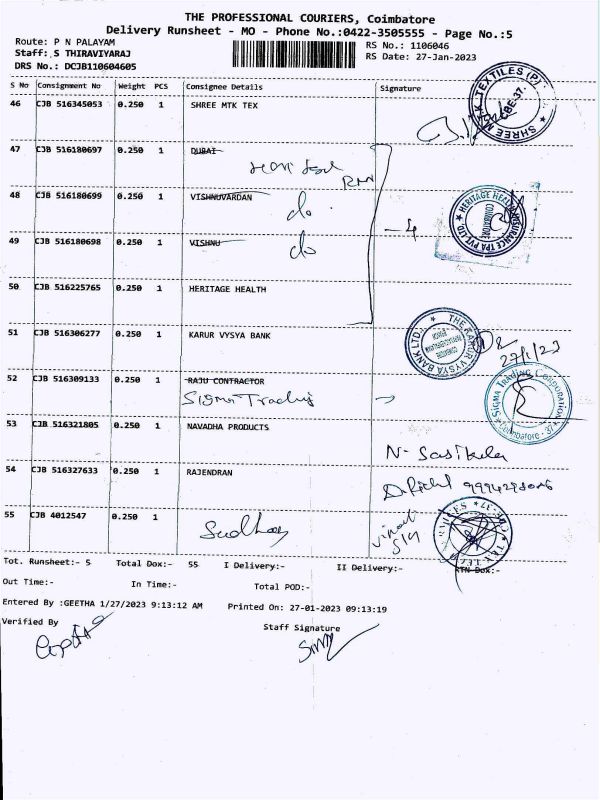 THE PROFESSIONAL COURIERS, Coimbatore
Delivery Runsheet - MO - Phone No.:0422-3505555 - Page No.:5
Route: P N PALAYAM
RS No.: 1106046
Staff: S THIRAVIYARAJ
RS Date: 27-Jan-2023
DRS No.: DCJB110604605
S No Consignment No Weight PCS Consignee Details Signature
46 CJB 516345053 0.250 1 SHREE MTK TEX
SHREE MTK TEXTILES (P)
CBE-37.
47 CJB 516180697 0.250 1 DUBAI
48 CJB 516180699 0.250 1 VISHNUVARDAN
do
-4
HERITAGE HEALTH INSURANCE TPA PVT LTD
COIMBATORE
49 CJB 516180698 0.250 1 VISHNU
do
50 CJB 516225765 0.250 1 HERITAGE HEALTH
51 CJB 516306277 0.250 1 KARUR VYSYA BANK
THE KARUR VYSYA BANK LTD.
27/1/23
52 CJB 516309133 0.250 1 RAJU CONTRACTOR
Sigma Trading
SIGMA TRADING CORPORATION
Coimbatore - 37
53 CJB 516321805 0.250 1 NAVADHA PRODUCTS
N- Sasikala
54 CJB 516327633 0.250 1 RAJENDRAN
55 CJB 4012547 0.250 1
Tot. Runsheet:- 5 Total Dox:- 55 I Delivery:- II Delivery:- RTN Dox:-
Out Time:- In Time:- Total POD:-
Entered By :GEETHA 1/27/2023 9:13:12 AM Printed On: 27-01-2023 09:13:19
Verified By Staff Signature